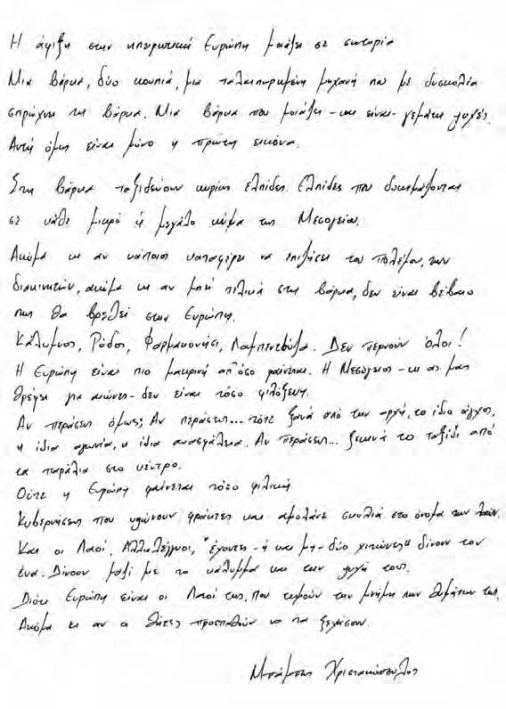 Η άφιξη στην ηπειρωτική Ευρώπη μοιάζει σε σωτηρία
Μια βάρκα, δύο κουπιά, μια ταλαιπωρημένη μηχανή που με δυσκολία
σπρώχνει τη βάρκα. Μια βάρκα που μοιάζει - και είναι - γεμάτη ψυχές.
Αυτή όμως είναι μόνο η πρώτη εικόνα.
Στη βάρκα ταξιδεύουν κυρίως ελπίδες. Ελπίδες που δοκιμάζονται
σε κάθε μικρό ή μεγάλο κύμα της Μεσογείου.
Ακόμα κι αν κάποιοι καταφέρει να επιζήσει του πολέμου, των
διακινητών, ακόμα κι αν μπει τελικά στη βάρκα, δεν είναι βέβαιο
πως θα βρεθεί στην Ευρώπη.
Κάλυμνος, Ρόδος, Φαρμακονήσι, Λαμπεντούζα. Δεν περνούν όλοι!
Η Ευρώπη είναι πιο μακρινή απ' όσο φαίνεται. Η Μεσόγειος - κι ας μας
θρέψει για αιώνες - δεν είναι τόσο φιλόξενη.
Αν περάσεις όμως; Αν περάσεις... τότε ξανά από την αρχή, το ίδιο άγχος,
η ίδια αγωνία, η ίδια ανασφάλεια. Αν περάσεις... ξεκινά το ταξίδι από
τα παράλια στο κέντρο.
Ούτε η Ευρώπη φαίνεται τόσο φιλική
Κυβερνήσεις που υψώνουν φράχτες και αμολάνε σκυλιά στο όνομα των λαών.
Και οι Λαοί, Αλληλέγγυοι, "έχοντες - ή και μη - δύο χιτώνες" δίνουν τον
ένα. Δίνουν μαζί με το κάλυμμα και την ψυχή τους.
Διότι Ευρώπη είναι οι Λαοί της, που τιμούν την μνήμη των θυμάτων της.
Ακόμα κι αν οι θύτες προσπαθούν να τα ξεχάσουν.
Μπάμπης Χριστακόπουλος